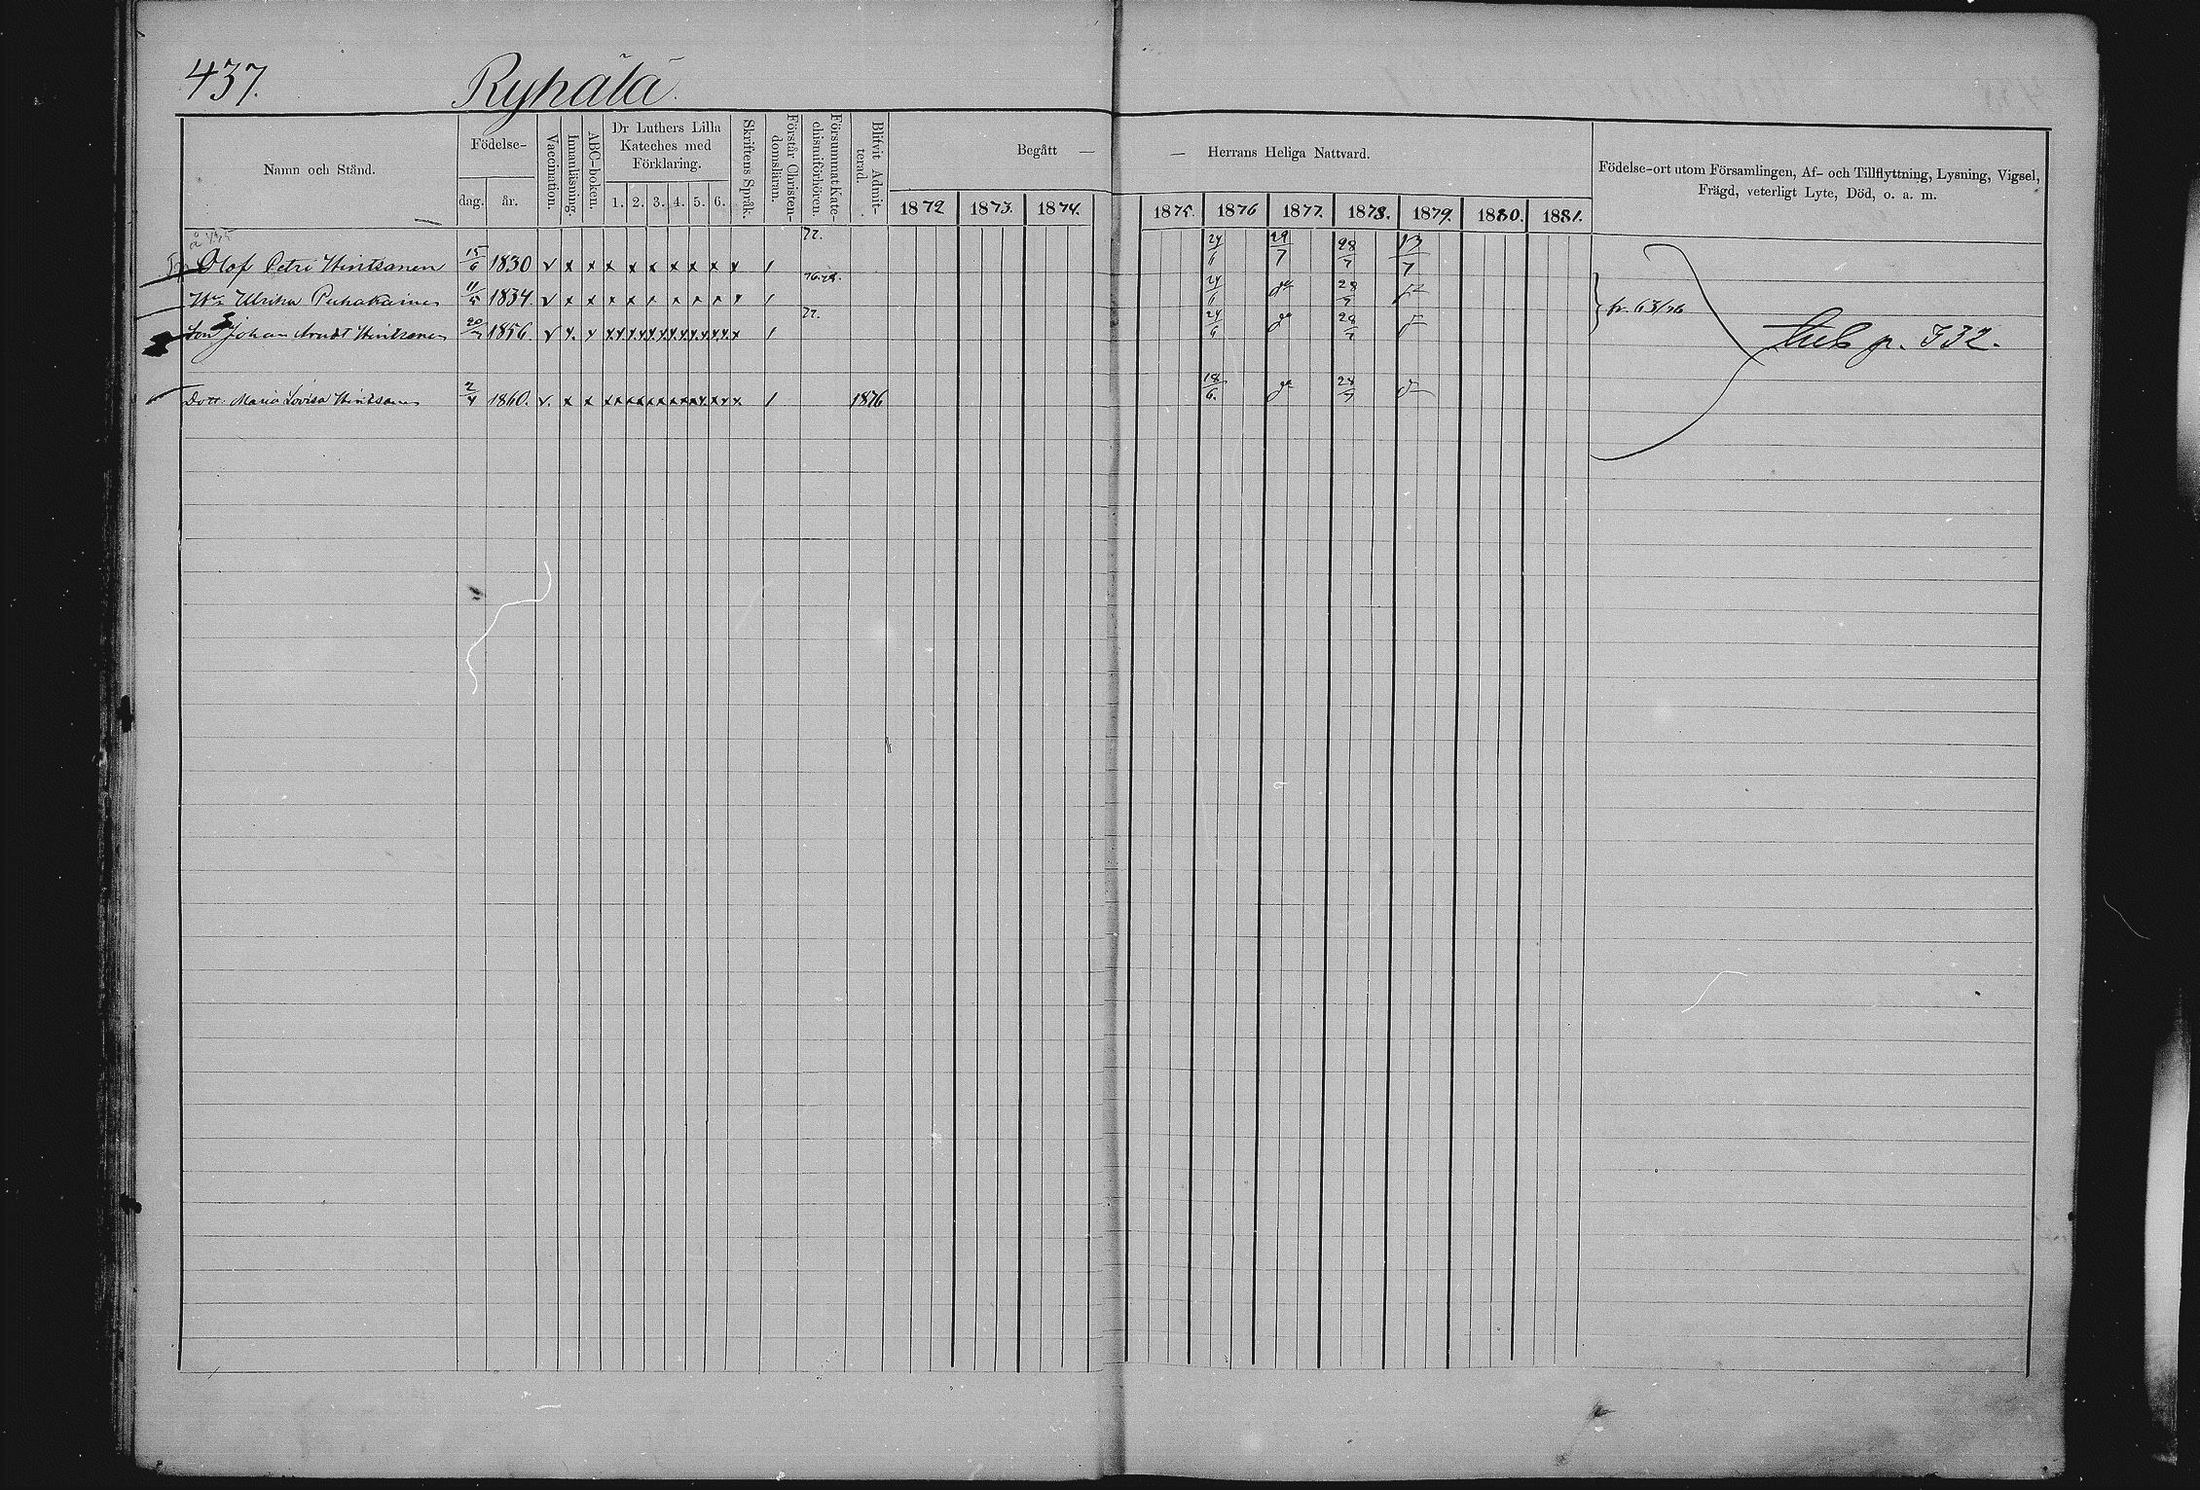 437. Ryhälä.
Namn och Stånd.
Födelse-
dag. år.
Vaccination.
Innanläsning.
ABC-boken.
Dr Luthers Lilla
Kateches med
Förklaring.
1. 2. 3. 4. 5. 6.
Skriftens Språk.
Förstår Christen-
domsläran.
Försummat Kate-
chismiförhören.
Blifvit Admit-
terad.
Begått —
— Herrans Heliga Nattvard.
1872 1873. 1874. 1875. 1876 1877. 1878. 1879. 1880. 1881.
Födelse-ort utom Församlingen, Af- och Tillflyttning, Lysning, Vigsel,
Frägd, veterligt Lyte, Död, o. a. m.
Olof Petri Hintsanen 15/6 1830 v x x x x x x x x x 1 77. 24/6 29/7 28/7 13/7
Hu Ulrika Puhakainen 11/5 1834 v x x x x x x x x x 1 24/6 28/7 fr. 63/76
Son Johan Hintsanen 20/7 1856. v x x x x x x x x x 1 77. 24/6 28/7
p. 532.
Dott. Maria Lovisa Hintsanen 2/4 1860. v. x x x x x x x x x 1 1876 18/6. 28/7